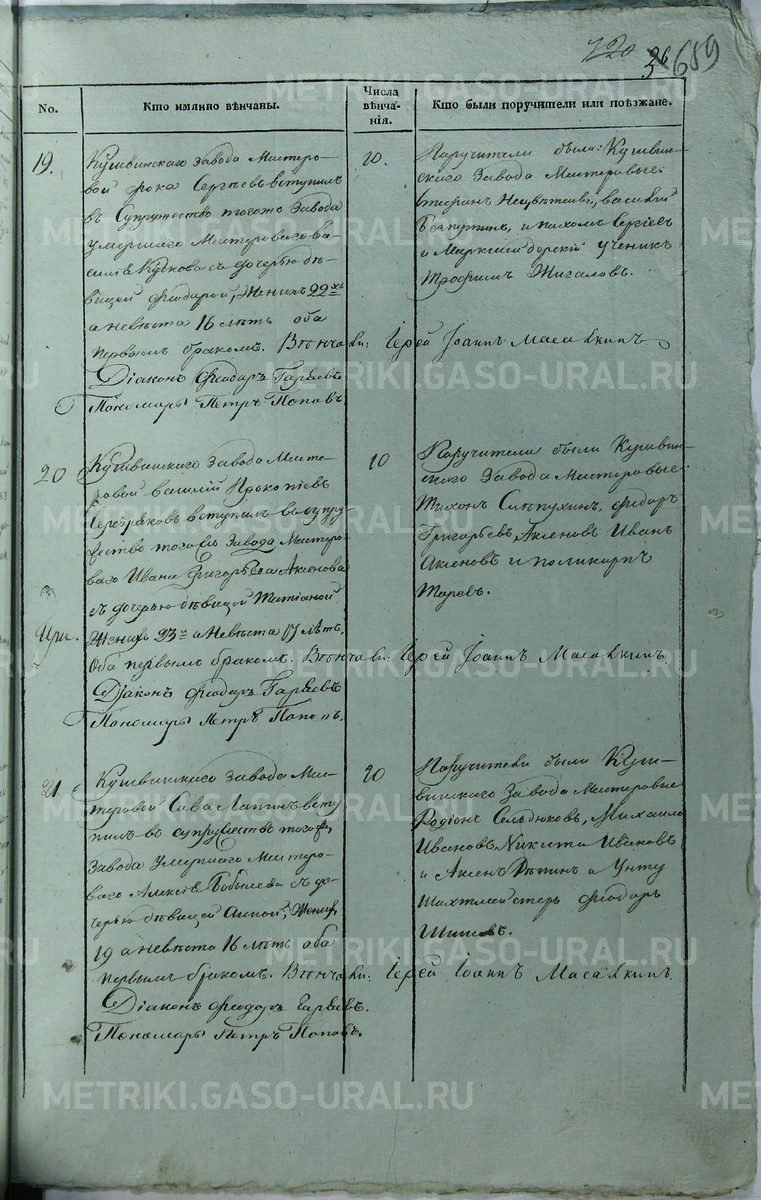 720
36 689
No.
Кто имянно вѣнчаны.
Числа вѣнча-нія.
Кто были поручители или поѣзжане.
19.
Кушвинскаго завода Мастеро-
вой Фока Сергѣевъ вступилъ
въ Супружество тогожъ Завода
умершаго Мастероваго Ва-
силія Кудкова съ дочерью дѣ-
вицей Феодорой, Женихъ 22хъ
а невѣста 16 лѣтъ оба
первымъ бракомъ. Вѣнчали: Іерей Іоаннъ Масалкинъ
Діаконъ Феодоръ Гаряевъ
Пономарь Петръ Поповъ.
20.
Поручители были: Кушвин-
скаго Завода Мастеровые
Стефанъ, Василий
и Пахомъ Сергѣевъ
и Маркшейдерский ученикъ
Трофимъ Жигаловъ.
20
Кушвинскаго Завода Масте-
ровой Василий Прокопіевъ
Серебряковъ вступилъ въ супру-
жество тогожъ Завода Мастеро-
ваго Ивана Григорьева Аксенова
съ дочерью дѣвицей Татіаной
Женихъ 23 а Невѣста 17 лѣтъ,
Оба первымъ бракомъ. Вѣнчали: Іерей Іоаннъ Масалкинъ.
Діаконъ Феодоръ Гаряевъ
Пономарь Петръ Поповъ.
20
Поручители были Кушвин-
скаго Завода Мастеровые:
Тихонъ Слѣпухинъ, Федоръ
Григорьевъ, Аксеновъ Иванъ
Аксеновъ и Поликарпъ
21
Кушвинскаго Завода Мас-
теровой Сава Лапинъ всту-
пилъ въ супружество тогожъ
Завода Умершаго Мастеро-
ваго Алексѣя Бобылева съ до-
черью дѣвицей Анной, Женихъ
19 а невѣста 16 лѣтъ оба
первымъ бракомъ. Вѣнчали: Іерей Іоаннъ Масалкинъ.
Діаконъ Феодоръ Гаряевъ.
Пономарь Петръ Поповъ.
20
Поручители были Куш-
винскаго Завода Мастеровые
Родіонъ Сельдюковъ, Михайло
Ивановъ, Никита Ивановъ
и Аксенъ Рѣпинъ и Унтер
Шахтмейстеръ Феодоръ
METRIKI.GASO-URAL.RU